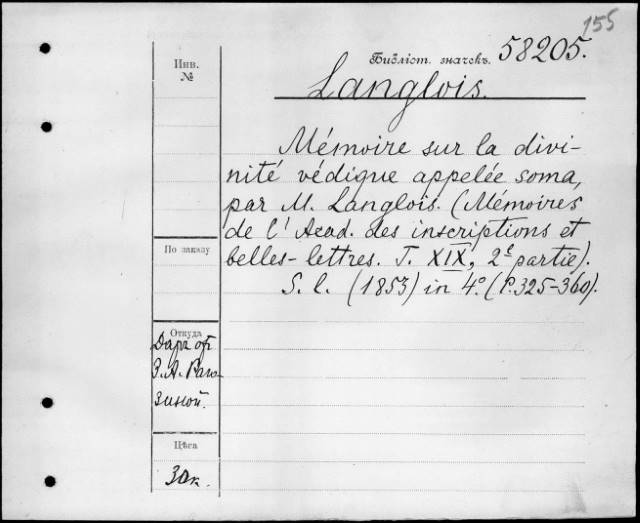 155
Библіот. значекъ. 58205.
Инв.
№
Langlois.
Mémoire sur la divi-
nité védique appelée soma,
par M. Langlois. (Mémoires
de l'Acad. des inscriptions et
belles-lettres. T. XIX, 2e partie).
S. l. (1853) in 4º. (P. 325-360).
По заказу
Откуда
Даръ от
З. А. Раго-
зиной.
Цѣна
30к.